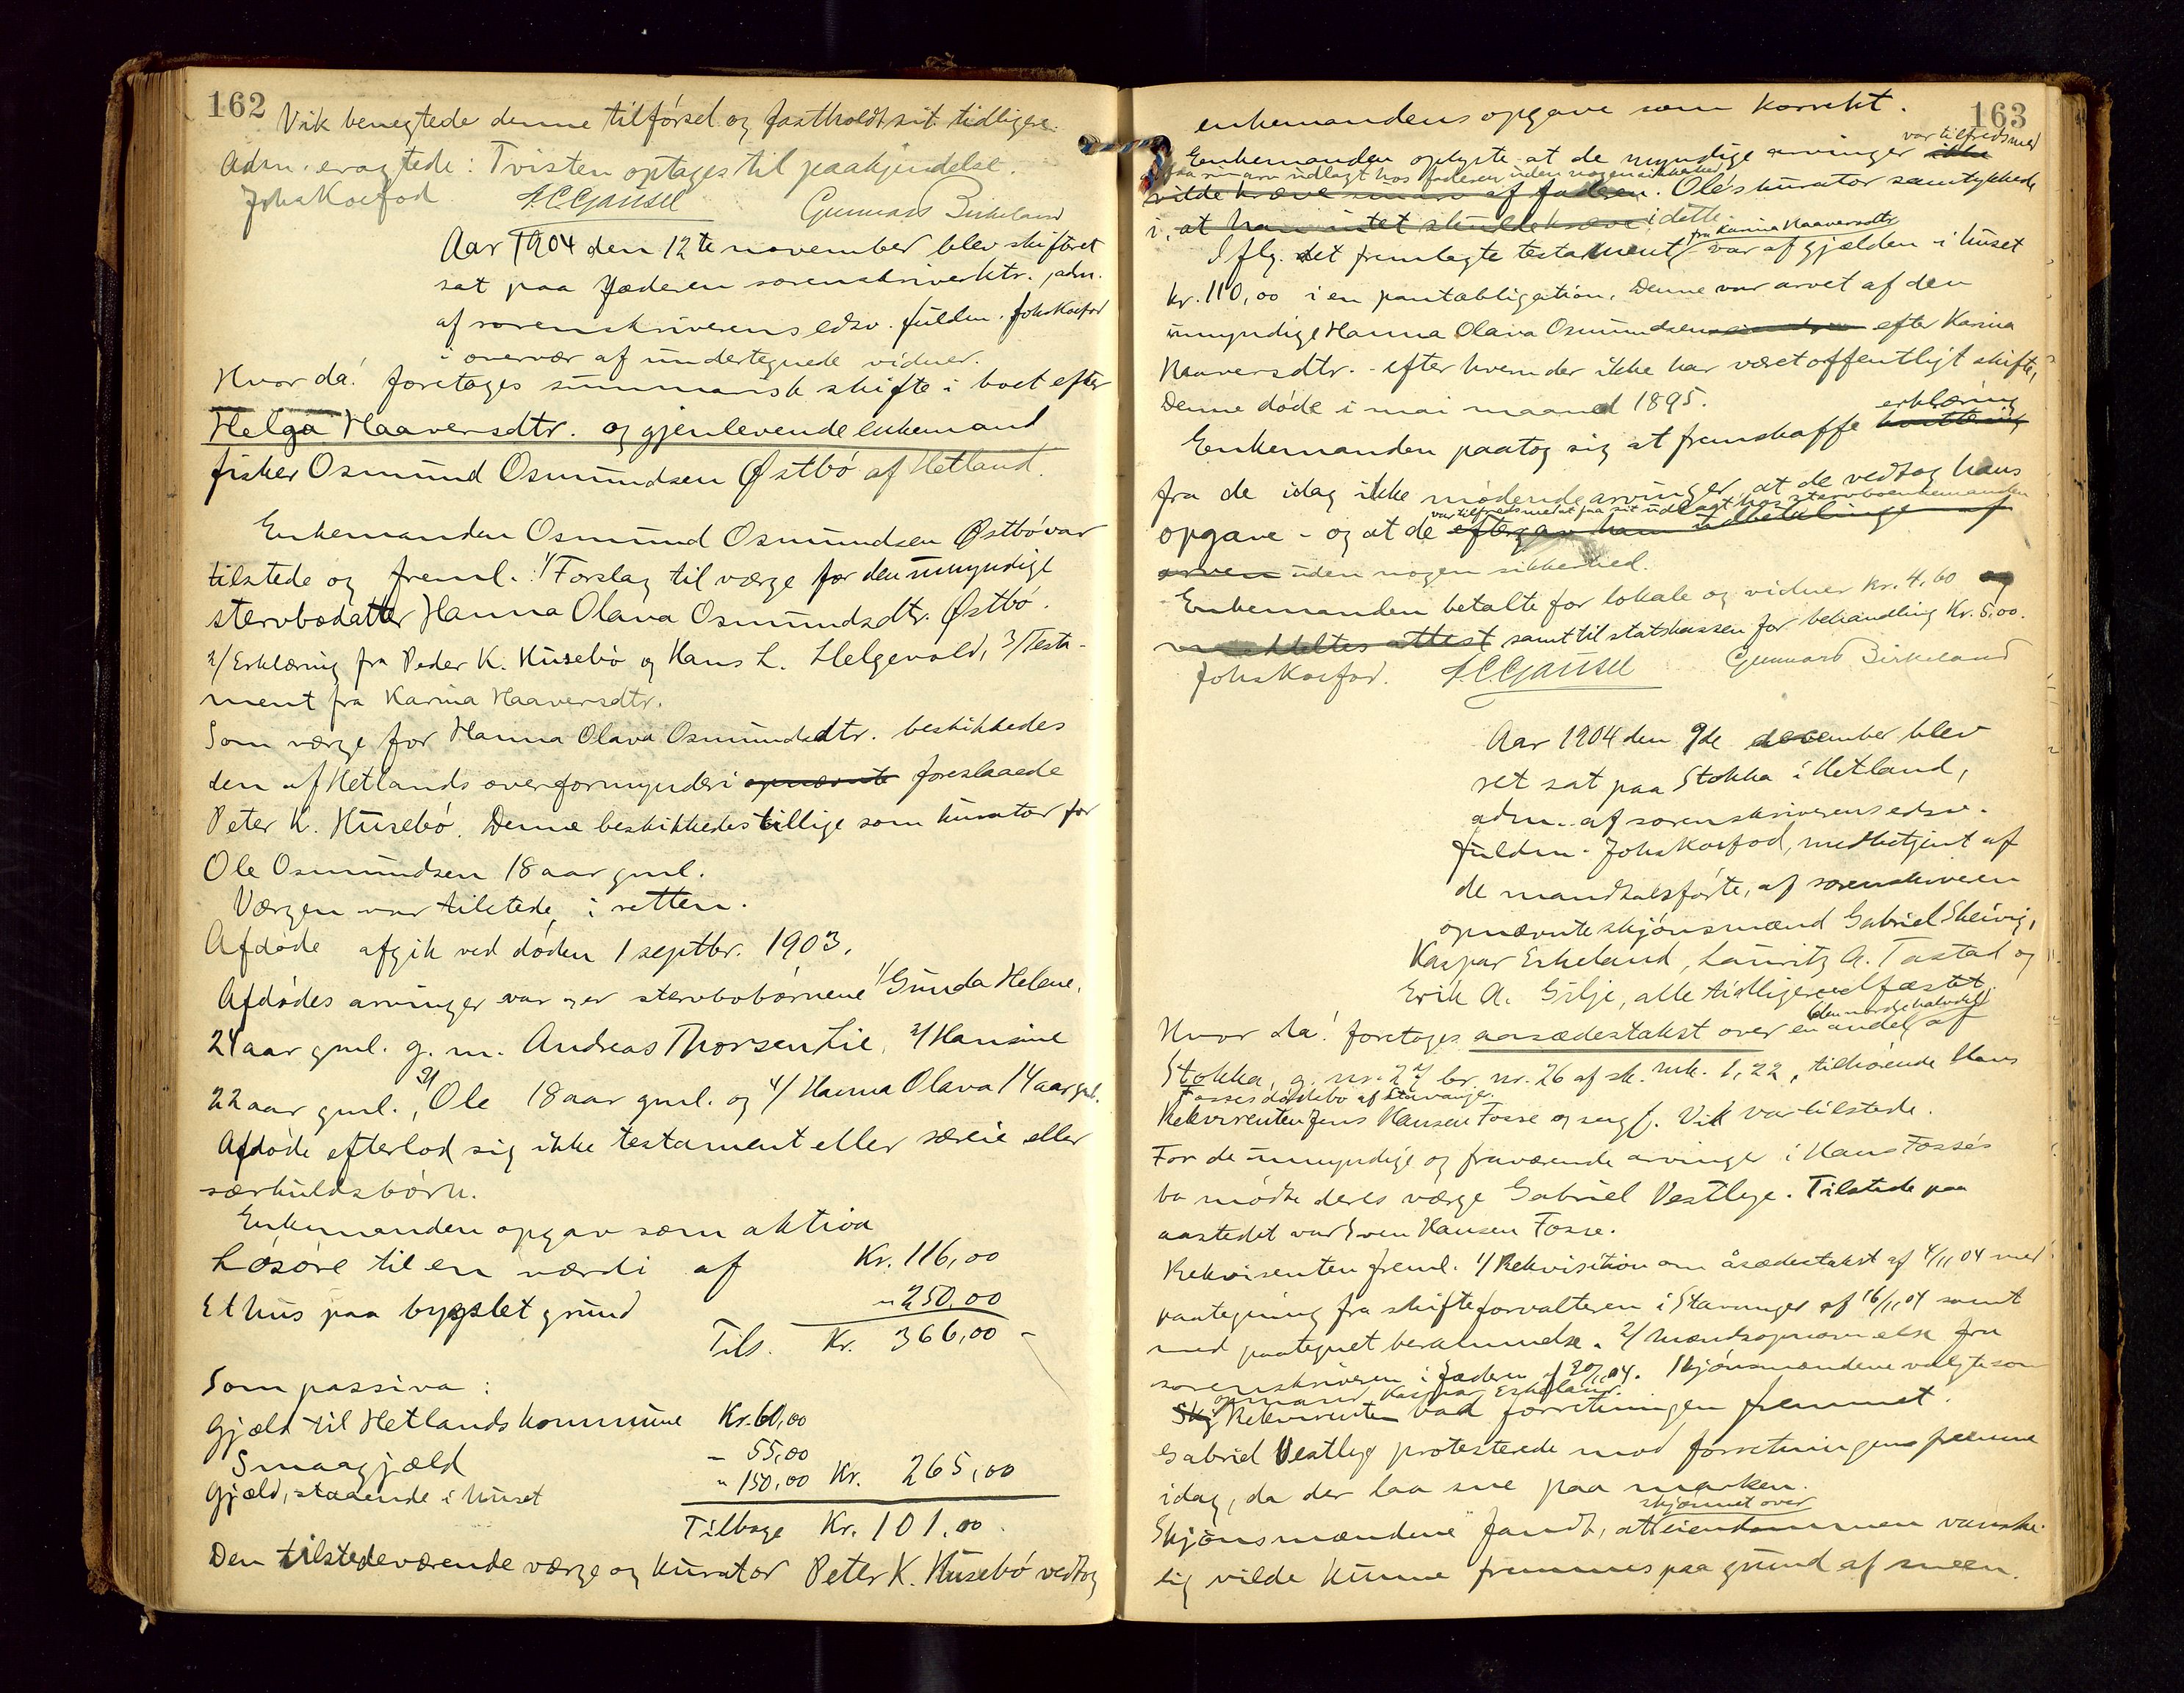 162
Vik benegtede denne tilførsel og fastholdt sit tidligere.
Adm. eragtede: Tvisten optages til paakjendelse.
Johs Koefod A.C. Gausel Gunnars Birkeland
Aar 1904 den 12te november blev skifteret
sat paa Jæderen sorenskriverktr., adm.
af sorenskriverens edsv. fuldm. Johs Koefod
i overvær af undertegnede vidner.
Hvor da! foretoges summarisk skifte i boet efter
Helga Haaversdtr. og gjenlevende enkemand
fisker Osmund Osmundsen Østbø af Hetland.
Enkemanden Osmund Osmundsen Østbø var
tilstede og freml. 1/ Forslag til værge for den umyndige
stervbodatter Hanna Olava Osmundsdtr. Østbø.
2/ Erklæring fra Peder K. Husebø og Hans L. Helgevold, 3/ Testa-
ment fra Karina Haaversdtr.
Som værge for Hanna Olava Osmundsdtr. beskikkedes
den af Hetlands overformynderi opnævnte foreslaaede
Peter K. Husebø. Denne beskikkedes tillige som kurator for
Ole Osmundsen 18 aar gml.
Værgen var tilstede i retten.
Afdøde afgik ved døden 1 septbr. 1903.
Afdødes arvinger var og er stervbobørnene 1/ Gunda Helene,
24 aar gml. g. m. Andreas Thorsen Lie, 2/ Hansine
22 aar gml., 3/ Ole 18 aar gml. og 4/ Hanna Olava 14 aar gml.
Afdøde efterlod sig ikke testament eller særeie eller
særkuldsbørn.
Enkemanden opgav som aktiva
Løsøre til en værdi af Kr. 116,00
Et hus paa bygslet grund " 250,00
Tils. Kr. 366,00 -
Som passiva:
Gjæld til Hetlands kommune Kr. 60,00
Smaagjæld - 55,00
Gjæld, staaende i huset " 150,00 Kr. 265,00
Tilbage Kr. 101,00.
Den tilstedeværende værge og kurator Peter K. Husebø vedtog
163
enkemandens opgave som korrekt.
Enkemanden oplyste at de myndige arvinger ikke var tilfreds med
at faa sin arv udlagt hos faderen uden nogen sikkerhed
vilde kræve sin arv af faderen. Ole's kurator samtykkede
i, at han intet skulde kræve i dette.
Iflg. det fremlagte testament fra Karina Haaversdtr. var af gjælden i huset
kr. 110,00 i en pantobligation. Denne var arvet af den
umyndige Hanna Olava Osmundsen efter Karina
Haaversdtr. - efter hvem der ikke har været offentligt skifte,
Denne døde i mai maaned 1895.
Enkemanden paatog sig at fremskaffe kvittering erklæring
fra de idag ikke mødende arvinger, at de vedtog hans
var tilfreds med at faa sit udlagt hos stervboenkemanden
opgave - og at de eftergav ham udbetalinge af
arven uden nogen sikkerhed.
Enkemanden betalte for lokale og vidner kr. 4,60 og
meddeltes attest samt til statskassen for behandling Kr. 5,00.
Johs Koefod. A.C. Gausel Gunnars Birkeland
Aar 1904 den 9de december blev
ret sat paa Stokka i Hetland,
adm. af sorenskriverens edsv.
fuldm. Johs Koefod, medbetjent af
de mandtalsførte, af sorenskriveren
opnævnte skjønsmænd Gabriel Skeivig,
Kaspar Eskeland, Lauritz A. Tastad og
Erik A. Gilje, alle tidligere edfæstet
Hvor da! foretoges aasædestakst over en andel (den nordre halvdel) af
Stokka, g. nr. 27 br. nr. 26 af sk. mk. 1,22, tilhørende Hans
Fosses dødsbo af Stavanger.
Rekvirenten Jens Hansen Fosse og sagf. Vik var tilstede.
For de umyndige og fraværende arvinger i Hans Fosses
bo mødte deres værge Gabriel Vestlye. Tilstede paa
aastedet var Sven Hansen Fosse.
Rekvirenten freml. 1/ Rekvisition om åsædestakst af 4/11 04 med
paategning fra skifteforvalteren i Stavanger af 16/11 04 samt
med paategnet berammelse. 2/ Mandsopnævnelse fra
sorenskriveren i Jæderen af 20/11 04. Skjønsmændene valgte som
opmand Kaspar Eskeland.
Skj Rekvirenten bad forretningen fremmet.
Gabriel Vestlye protesterede mod forretningens fremme
idag, da der laa sne paa marken.
Skjønsmændene fandt, at skjønnet over eiendommen vanske-
lig vilde kunne fremmes paa grund af sneen.